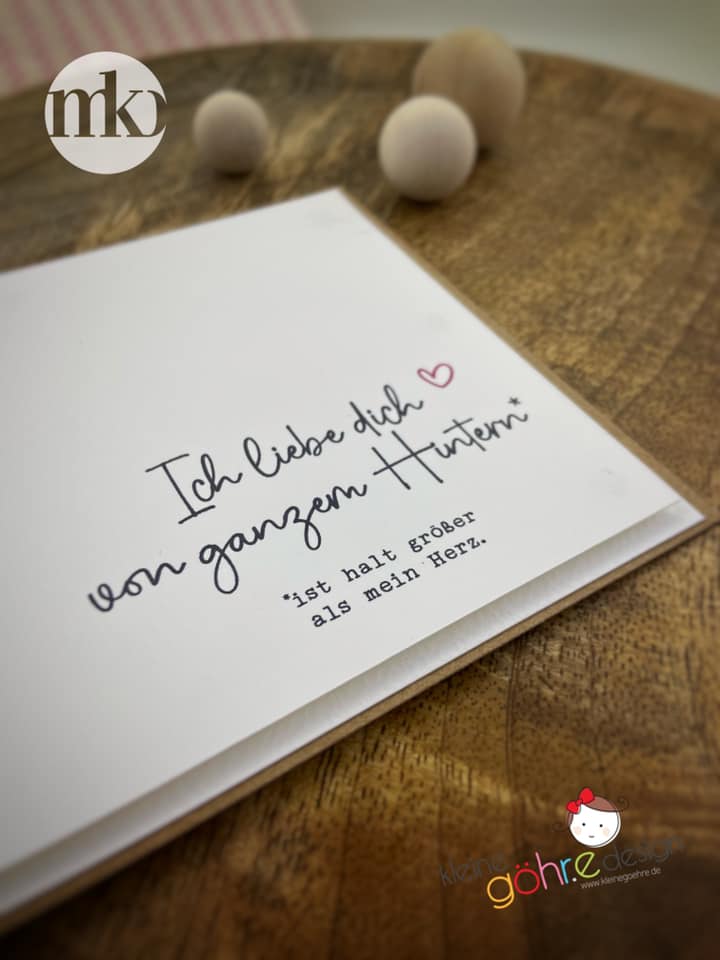 mko
Ich liebe dich
von ganzem Hintern*
*ist halt größer
als mein Herz.
kleine göhr.e design
www.kleinegoehre.de